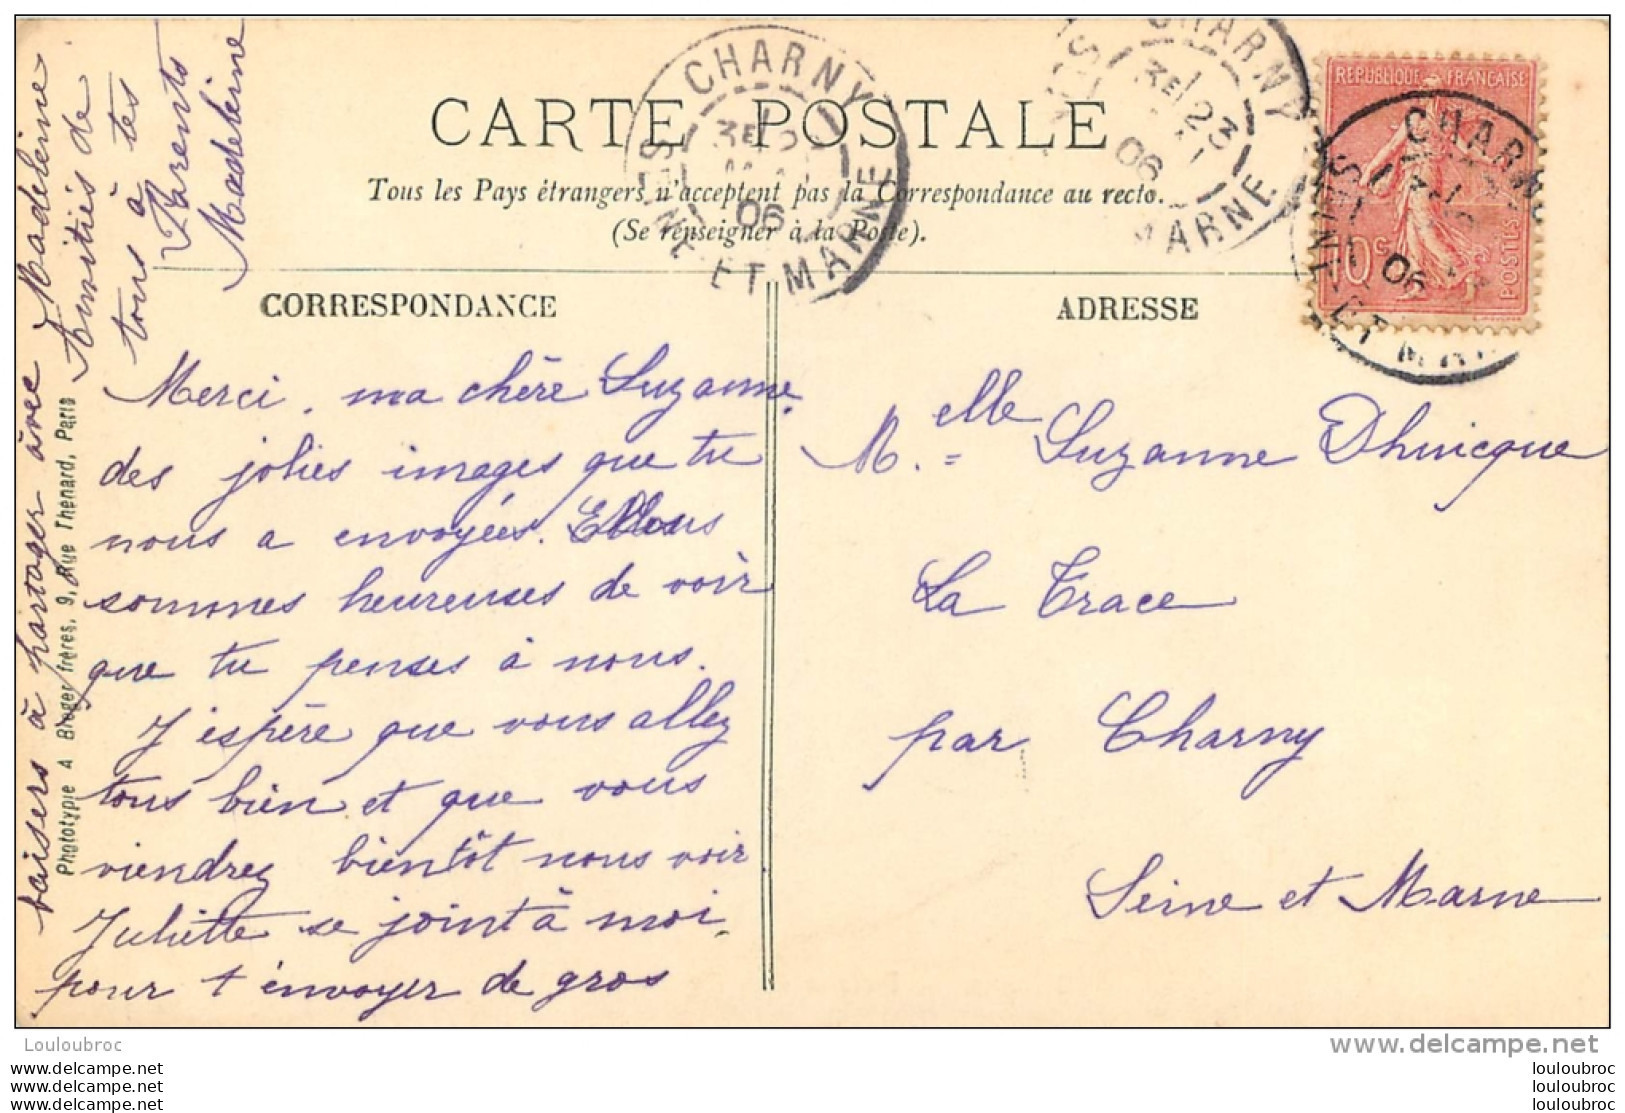 CARTE POSTALE
Tous les Pays étrangers n'acceptent pas la Correspondance au recto.
(Se renseigner à la Poste).
CORRESPONDANCE
ADRESSE
CHARNY
06
SEINE ET MARNE
CHARNY
23
06
MARNE
REPUBLIQUE FRANÇAISE
10c
POSTES
CHARNY
06
Merci, ma chère Suzanne,
des jolies images que tu
nous a envoyées. Nous
sommes heureuses de voir
que tu penses à nous.
J'espère que vous allez
tous bien et que vous
viendrez bientôt nous voir
Juliette se joint à moi,
pour t'envoyer de gros
baisers à partager avec Madeleine
Amitiés de
tous à tes
Parents
Madeleine
Phototypie A Breger frères, 9, Rue Thenard, Paris
M.elle Suzanne Dhuicque
La Trace
par Charny
Seine et Marne
Louloubroc
www.delcampe.net
www.delcampe.net
www.delcampe.net
www.delcampe.net
louloubroc
louloubroc
louloubroc